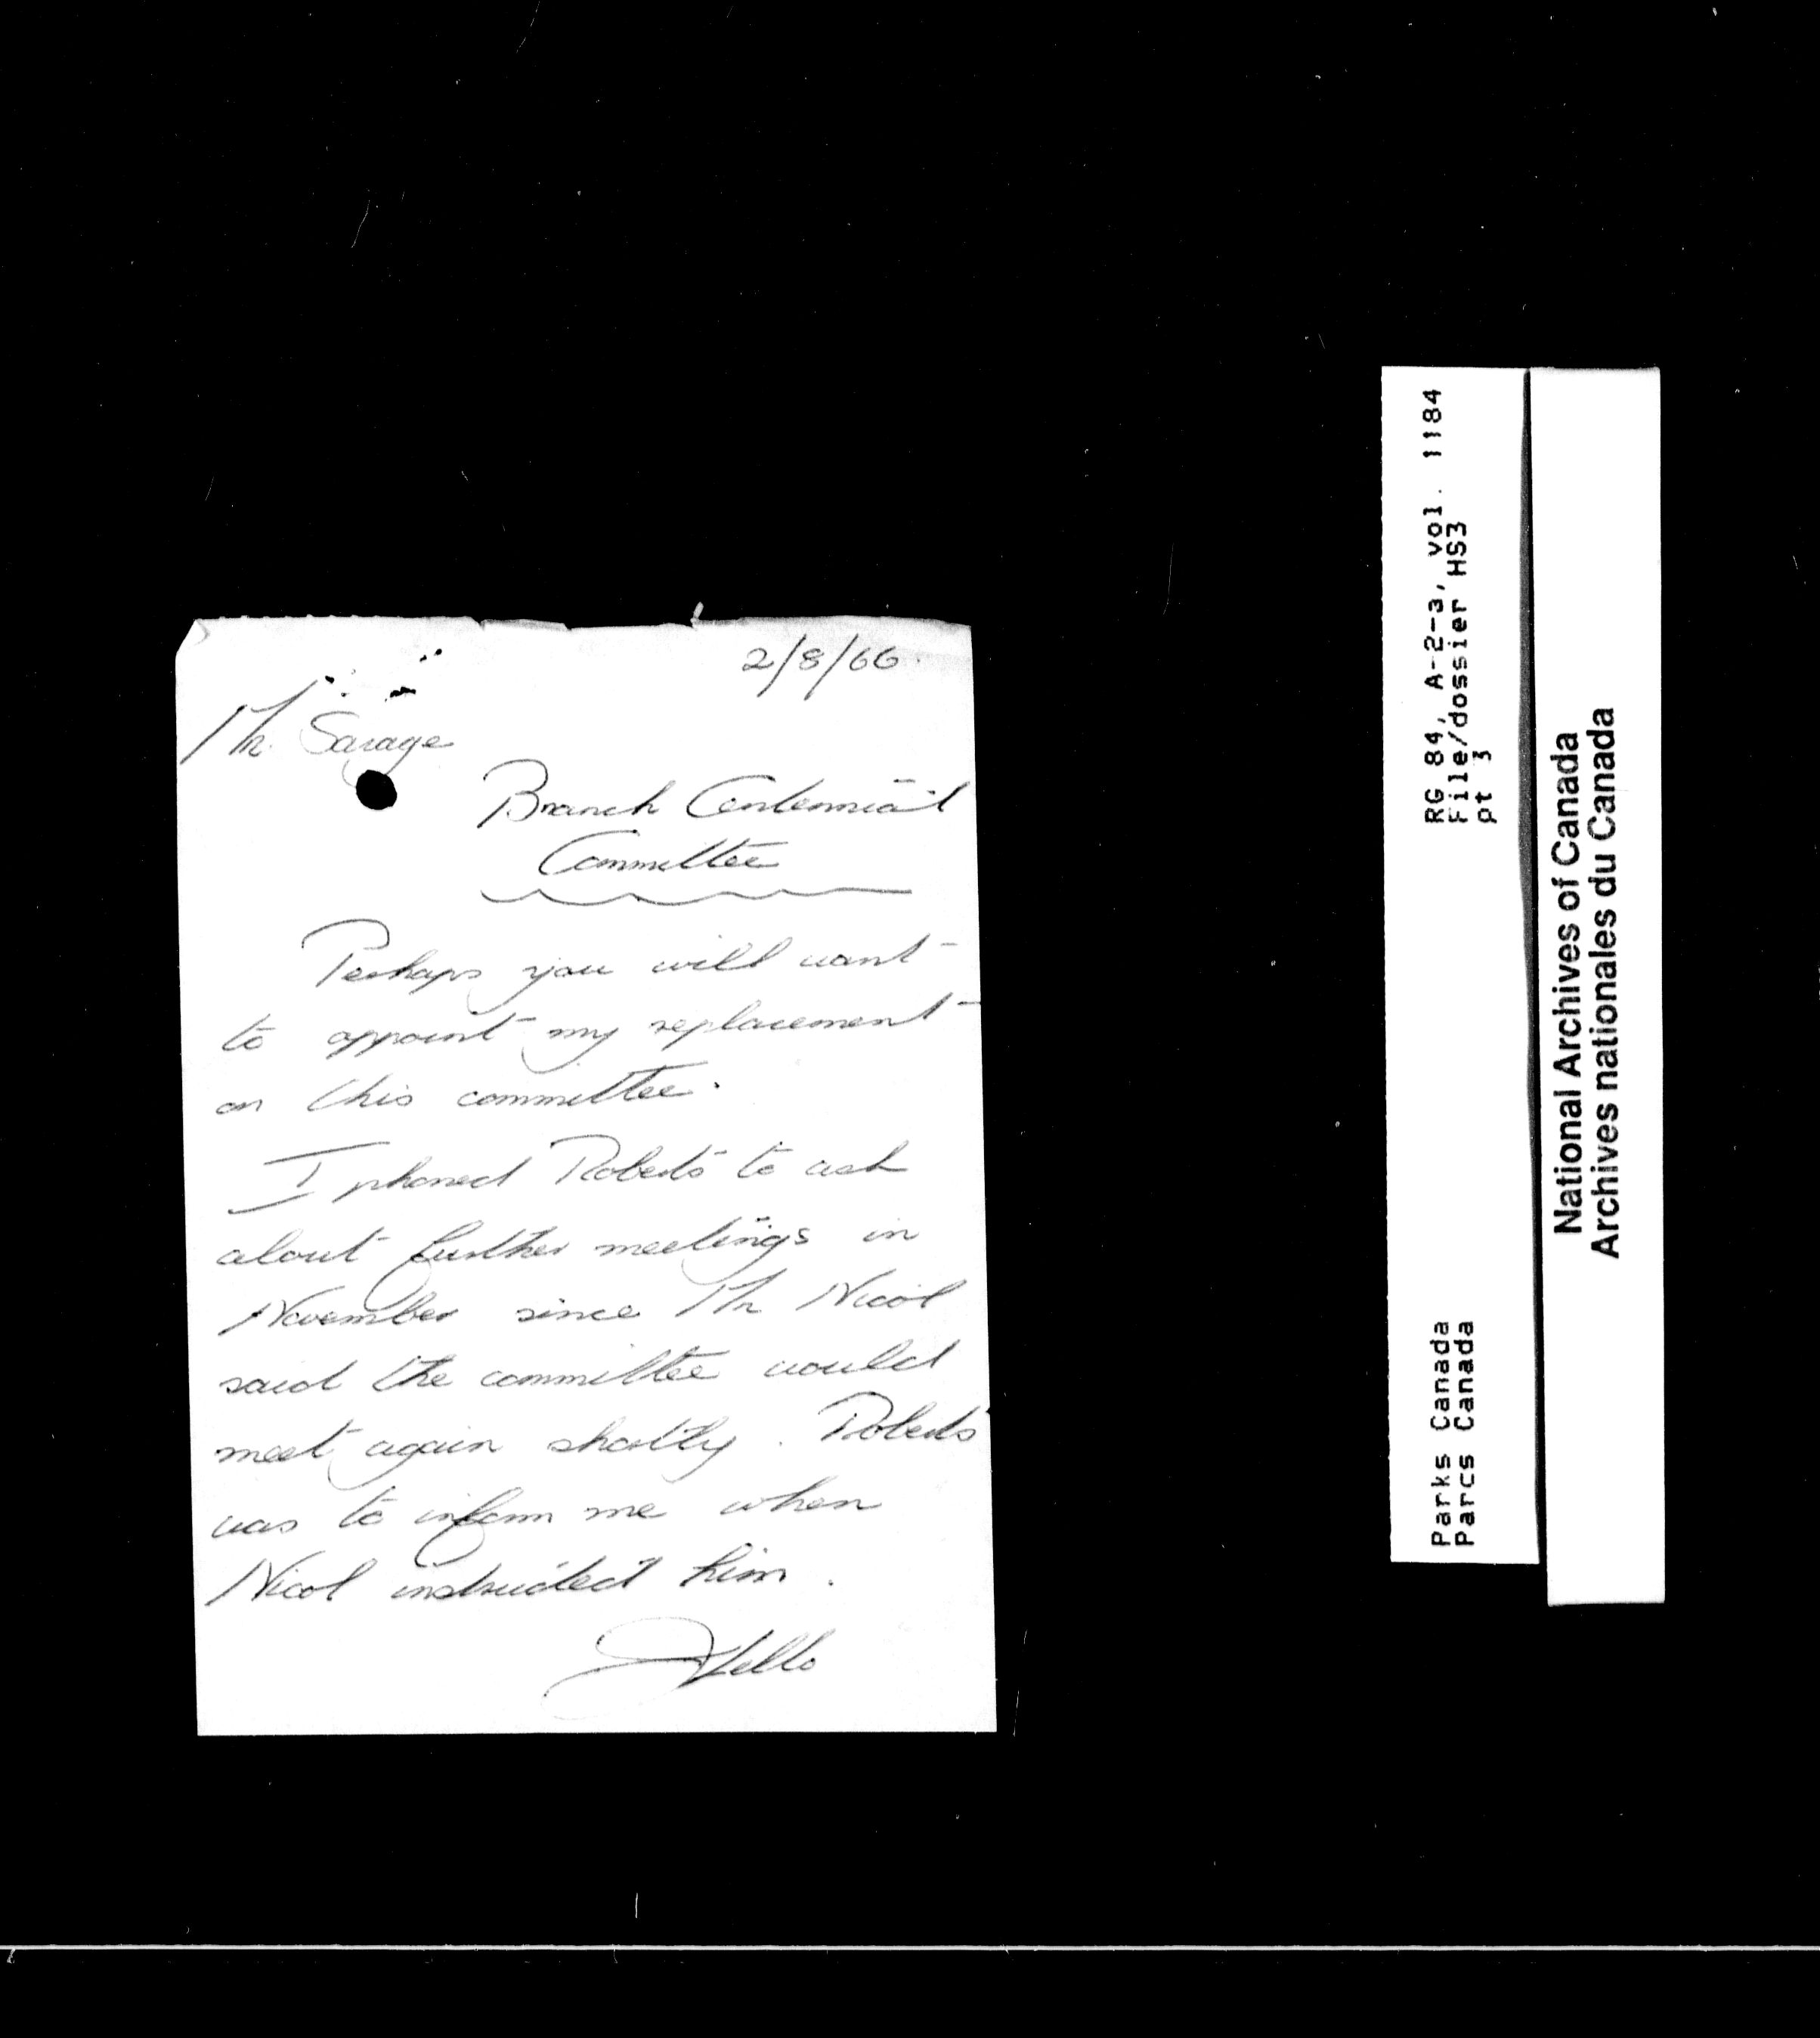 2/8/66.
Mr. Savage
Branch Centennial
Committee
Perhaps you will want
to appoint my replacement
on this committee.
I phoned Roberts to ask
about further meetings in
November since Mr Nicol
said the committee would
meet again shortly. Roberts
was to inform me when
Nicol instructed him.
RG 84, A-2-a, vol. 1184
File/dossier HS3
pt 3
Parks Canada
Parcs Canada
National Archives of Canada
Archives nationales du Canada